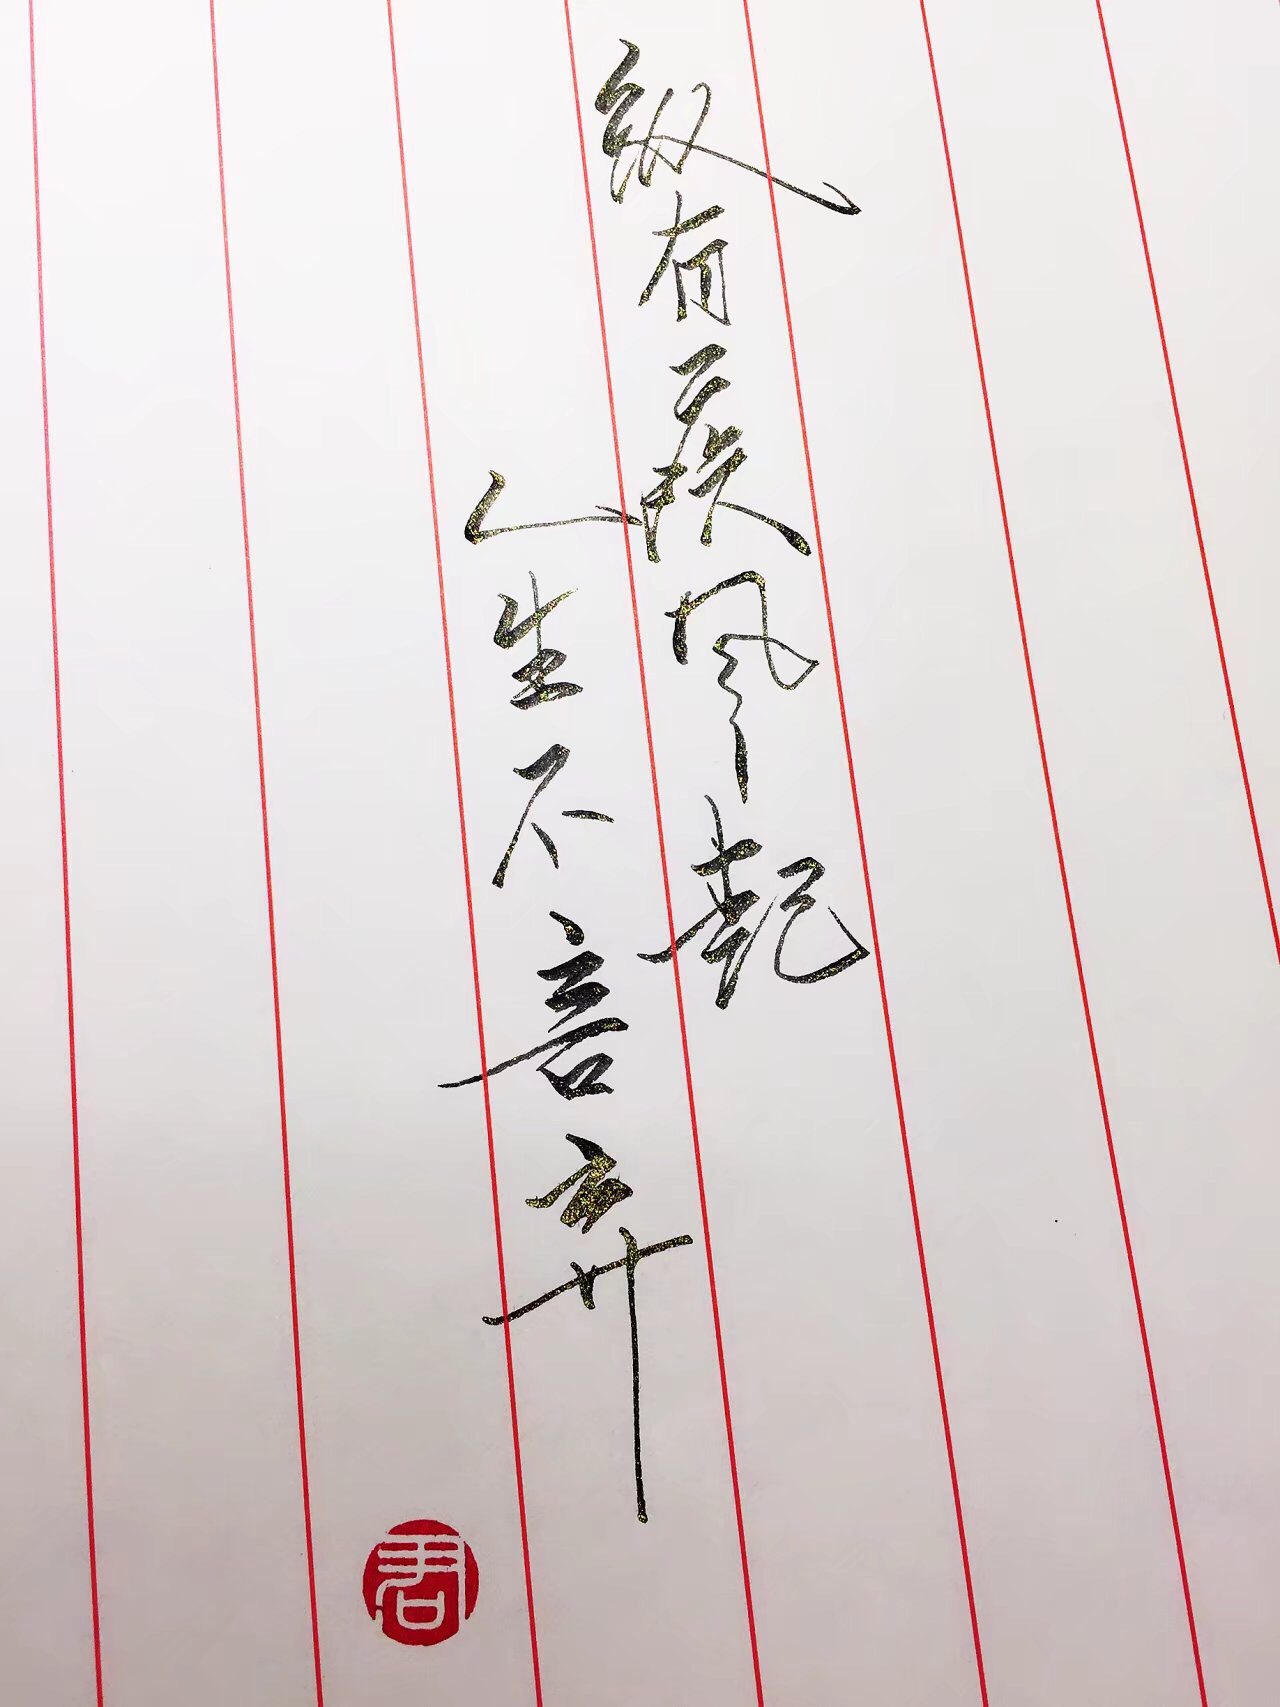 纵有疾风起
人生不言弃
君